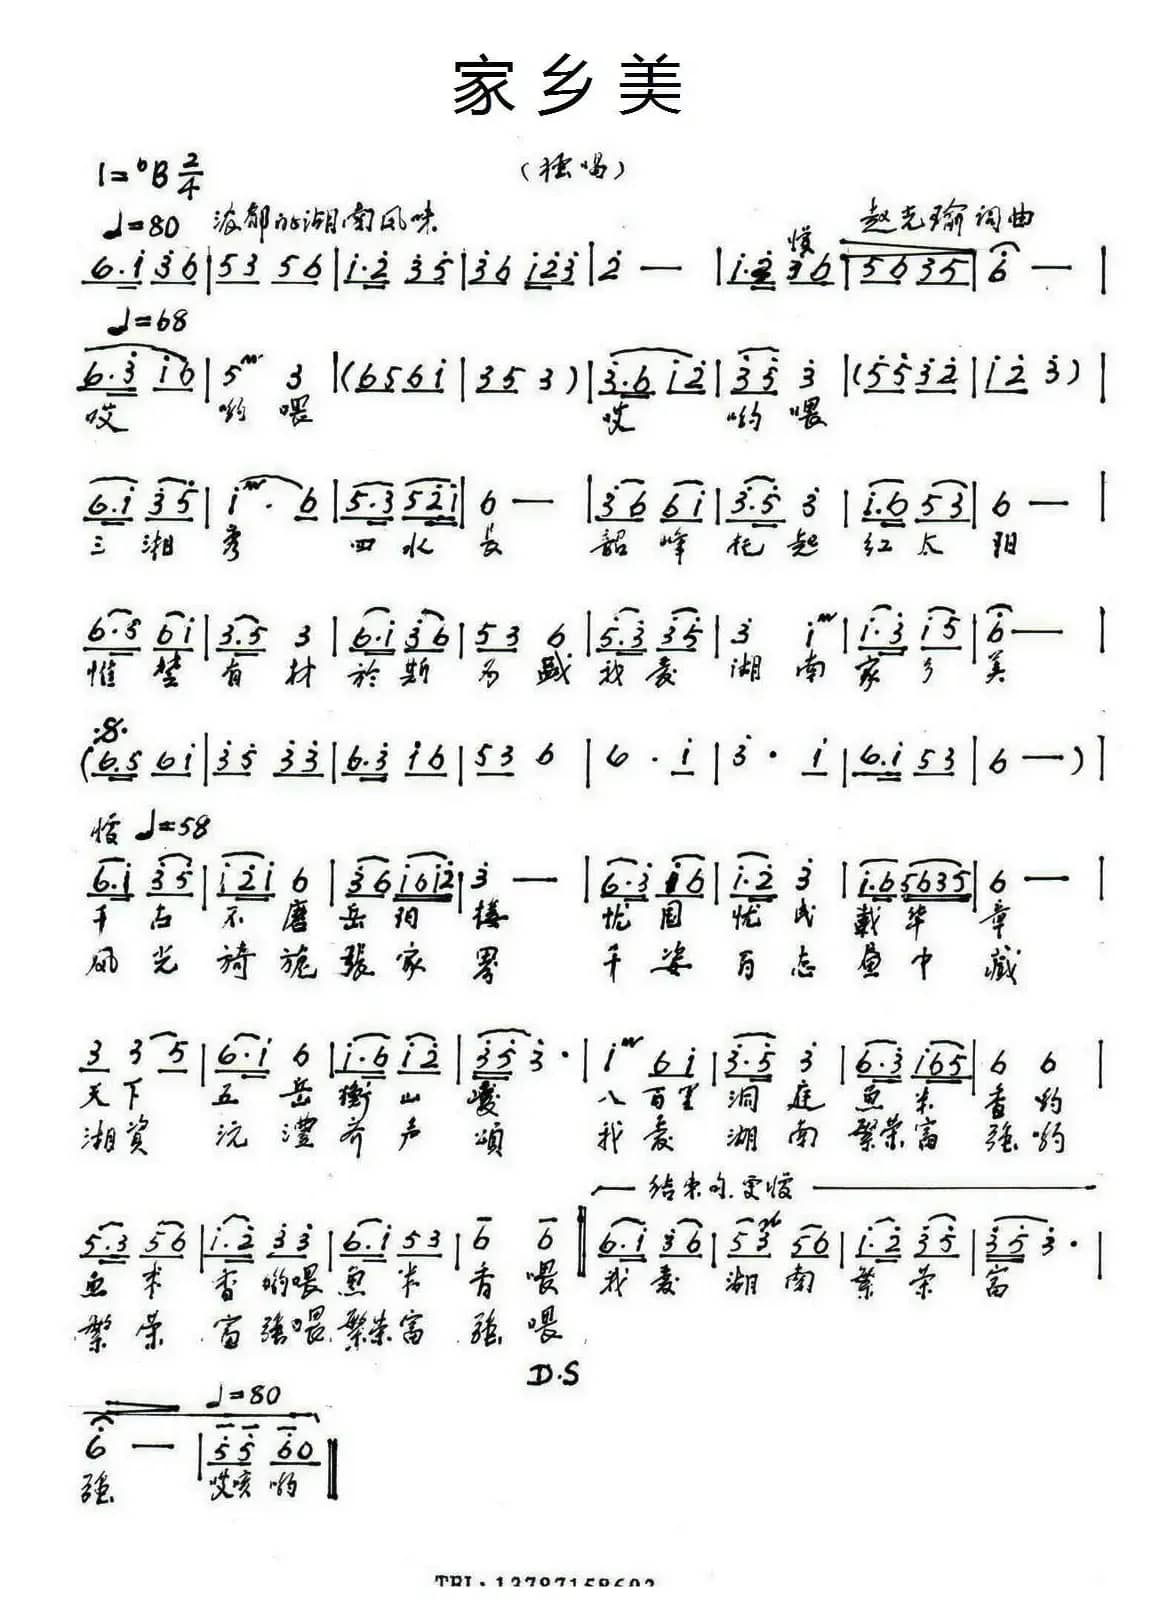 家乡美
1=♭B 2/4
（独唱）
♩=80 浓郁的湖南风味
赵克瑜词曲
慢
6.1 36|53 56|1.2 35|36 123|2 —|1.2 36|5635|6 —|
♩=68
6.3 16|5 3|(6561|353)|3.616 12|35 3|(5532|12 3)|
哎 哟喂 哎 哟喂
6.1 35|1. 6|5.3 521|6 —|36 61|3.5 3|1.6 53|6 —|
三湘秀 四水長 韶峰托起红太阳
6.5 61|3.5 3|6.1 36|53 6|5.3 35|3 1|1.3 15|6 —|
惟楚有材於斯为盛我爱湖南家乡美
(6.5 61|35 33|6.3 16|53 6|6. 1|3. 1|6.1 53|6 —)|
慢 ♩=58
6.1 35|121 6|36 1612|3 —|6.3 16|1.2 3|1.6 5635|6 —|
千古不磨岳阳楼 忧国忧民載华章
风光旖旎張家界 千姿百态画中藏
3 35|6.1 6|1.6 12|35 3.|1 61|3.5 3|6.3 165|6 6|
天下五岳衡山峻 八百里洞庭魚米香哟
湘資沅澧齐声頌 我爱湖南繁荣富强哟
结束句更慢
5.3 56|1.2 33|6.1 53|6 6‖6.1 36|53 56|1.2 35|35 3.|
魚米香哟喂魚米香喂 我爱湖南繁荣富
繁荣富强喂繁荣富强喂
D.S
♩=80
6 —|55 60‖
强 哎咳哟
TEL:13787158603